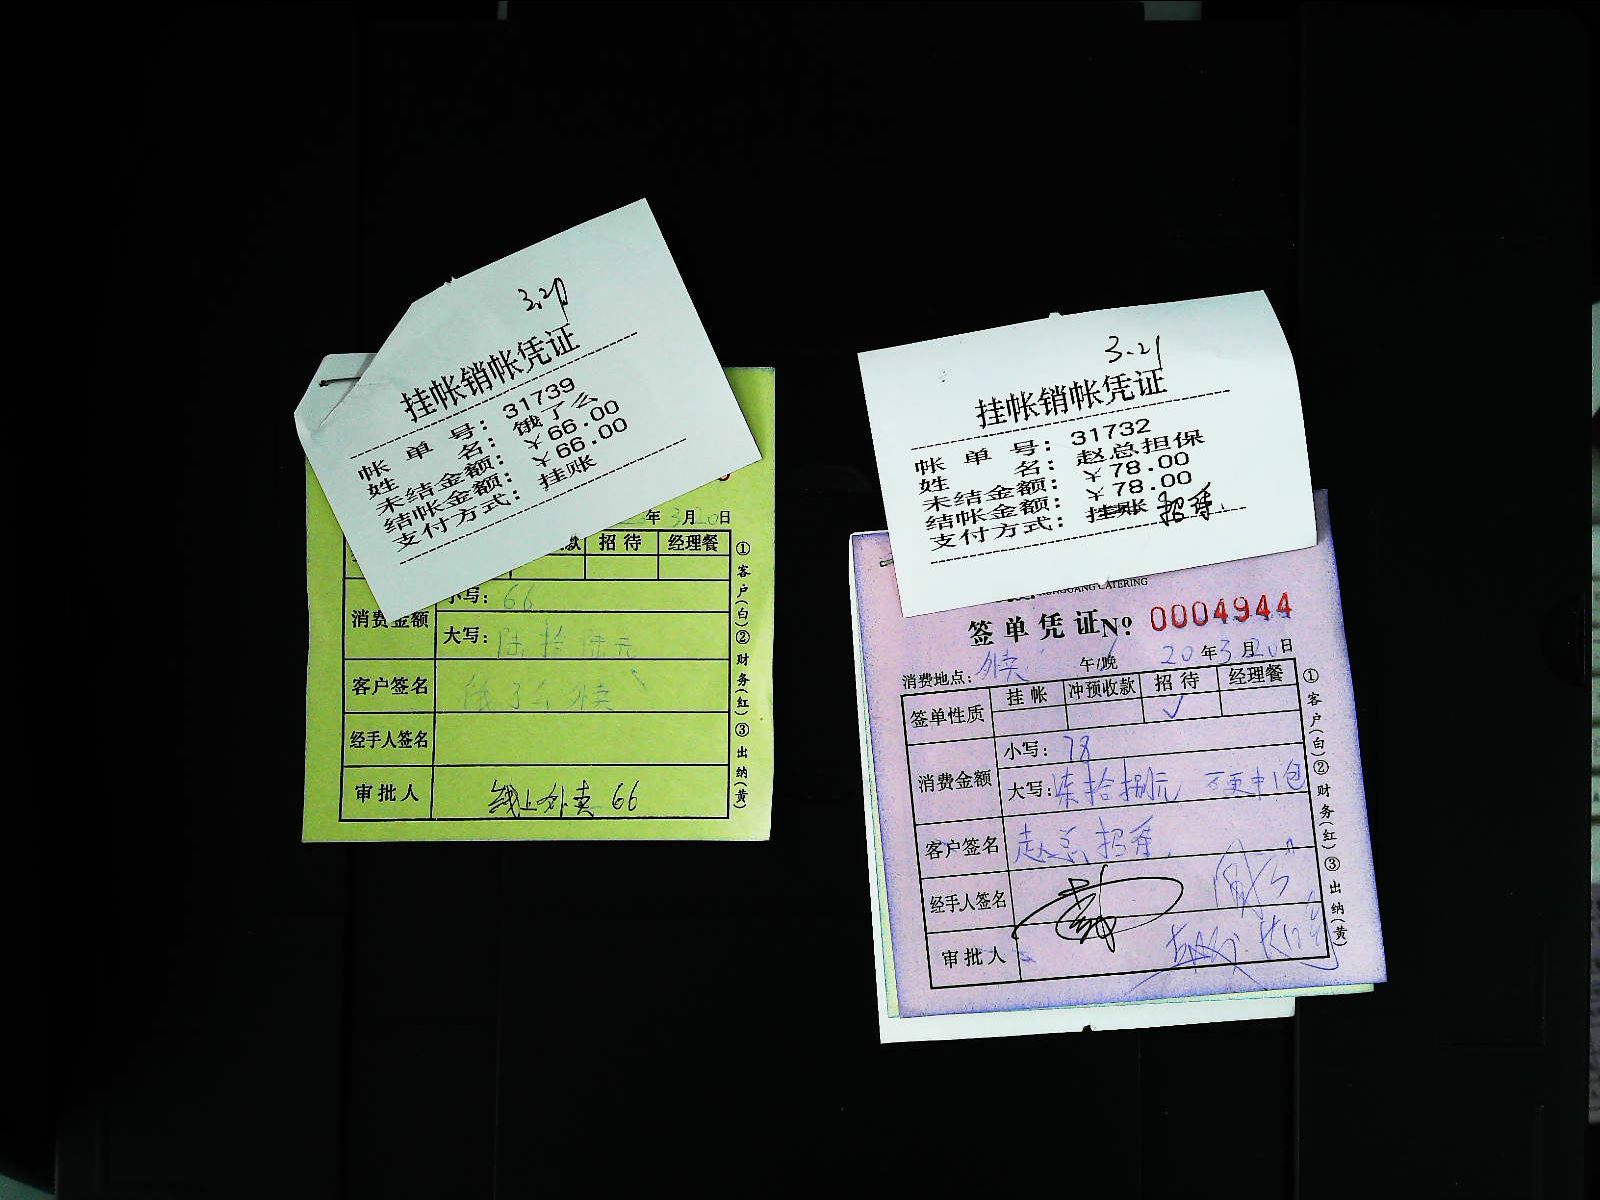 挂帐销帐凭证
帐单号：31739
姓名：饿了么
未结金额：￥66.00
结帐金额：￥66.00
支付方式：挂账
年3月20日
款 招待 经理餐
消费金额
小写：66
大写：陆拾陆元
客户签名 饿了么外卖
经手人签名
审批人 线上外卖 66
①客户(白)②财务(红)③出纳(黄)
3.21
挂帐销帐凭证
帐单号：31732
姓名：赵总担保
未结金额：￥78.00
结帐金额：￥78.00
支付方式：挂账 招待
CATERING
签单凭证No 0004944
消费地点：外卖 午/晚 20年3月20日
签单性质 挂帐 冲预收款 招待 经理餐
✓
消费金额
小写：78
大写：柒拾捌元
客户签名 赵总招待
经手人签名
审批人
①客户(白)②财务(红)③出纳(黄)